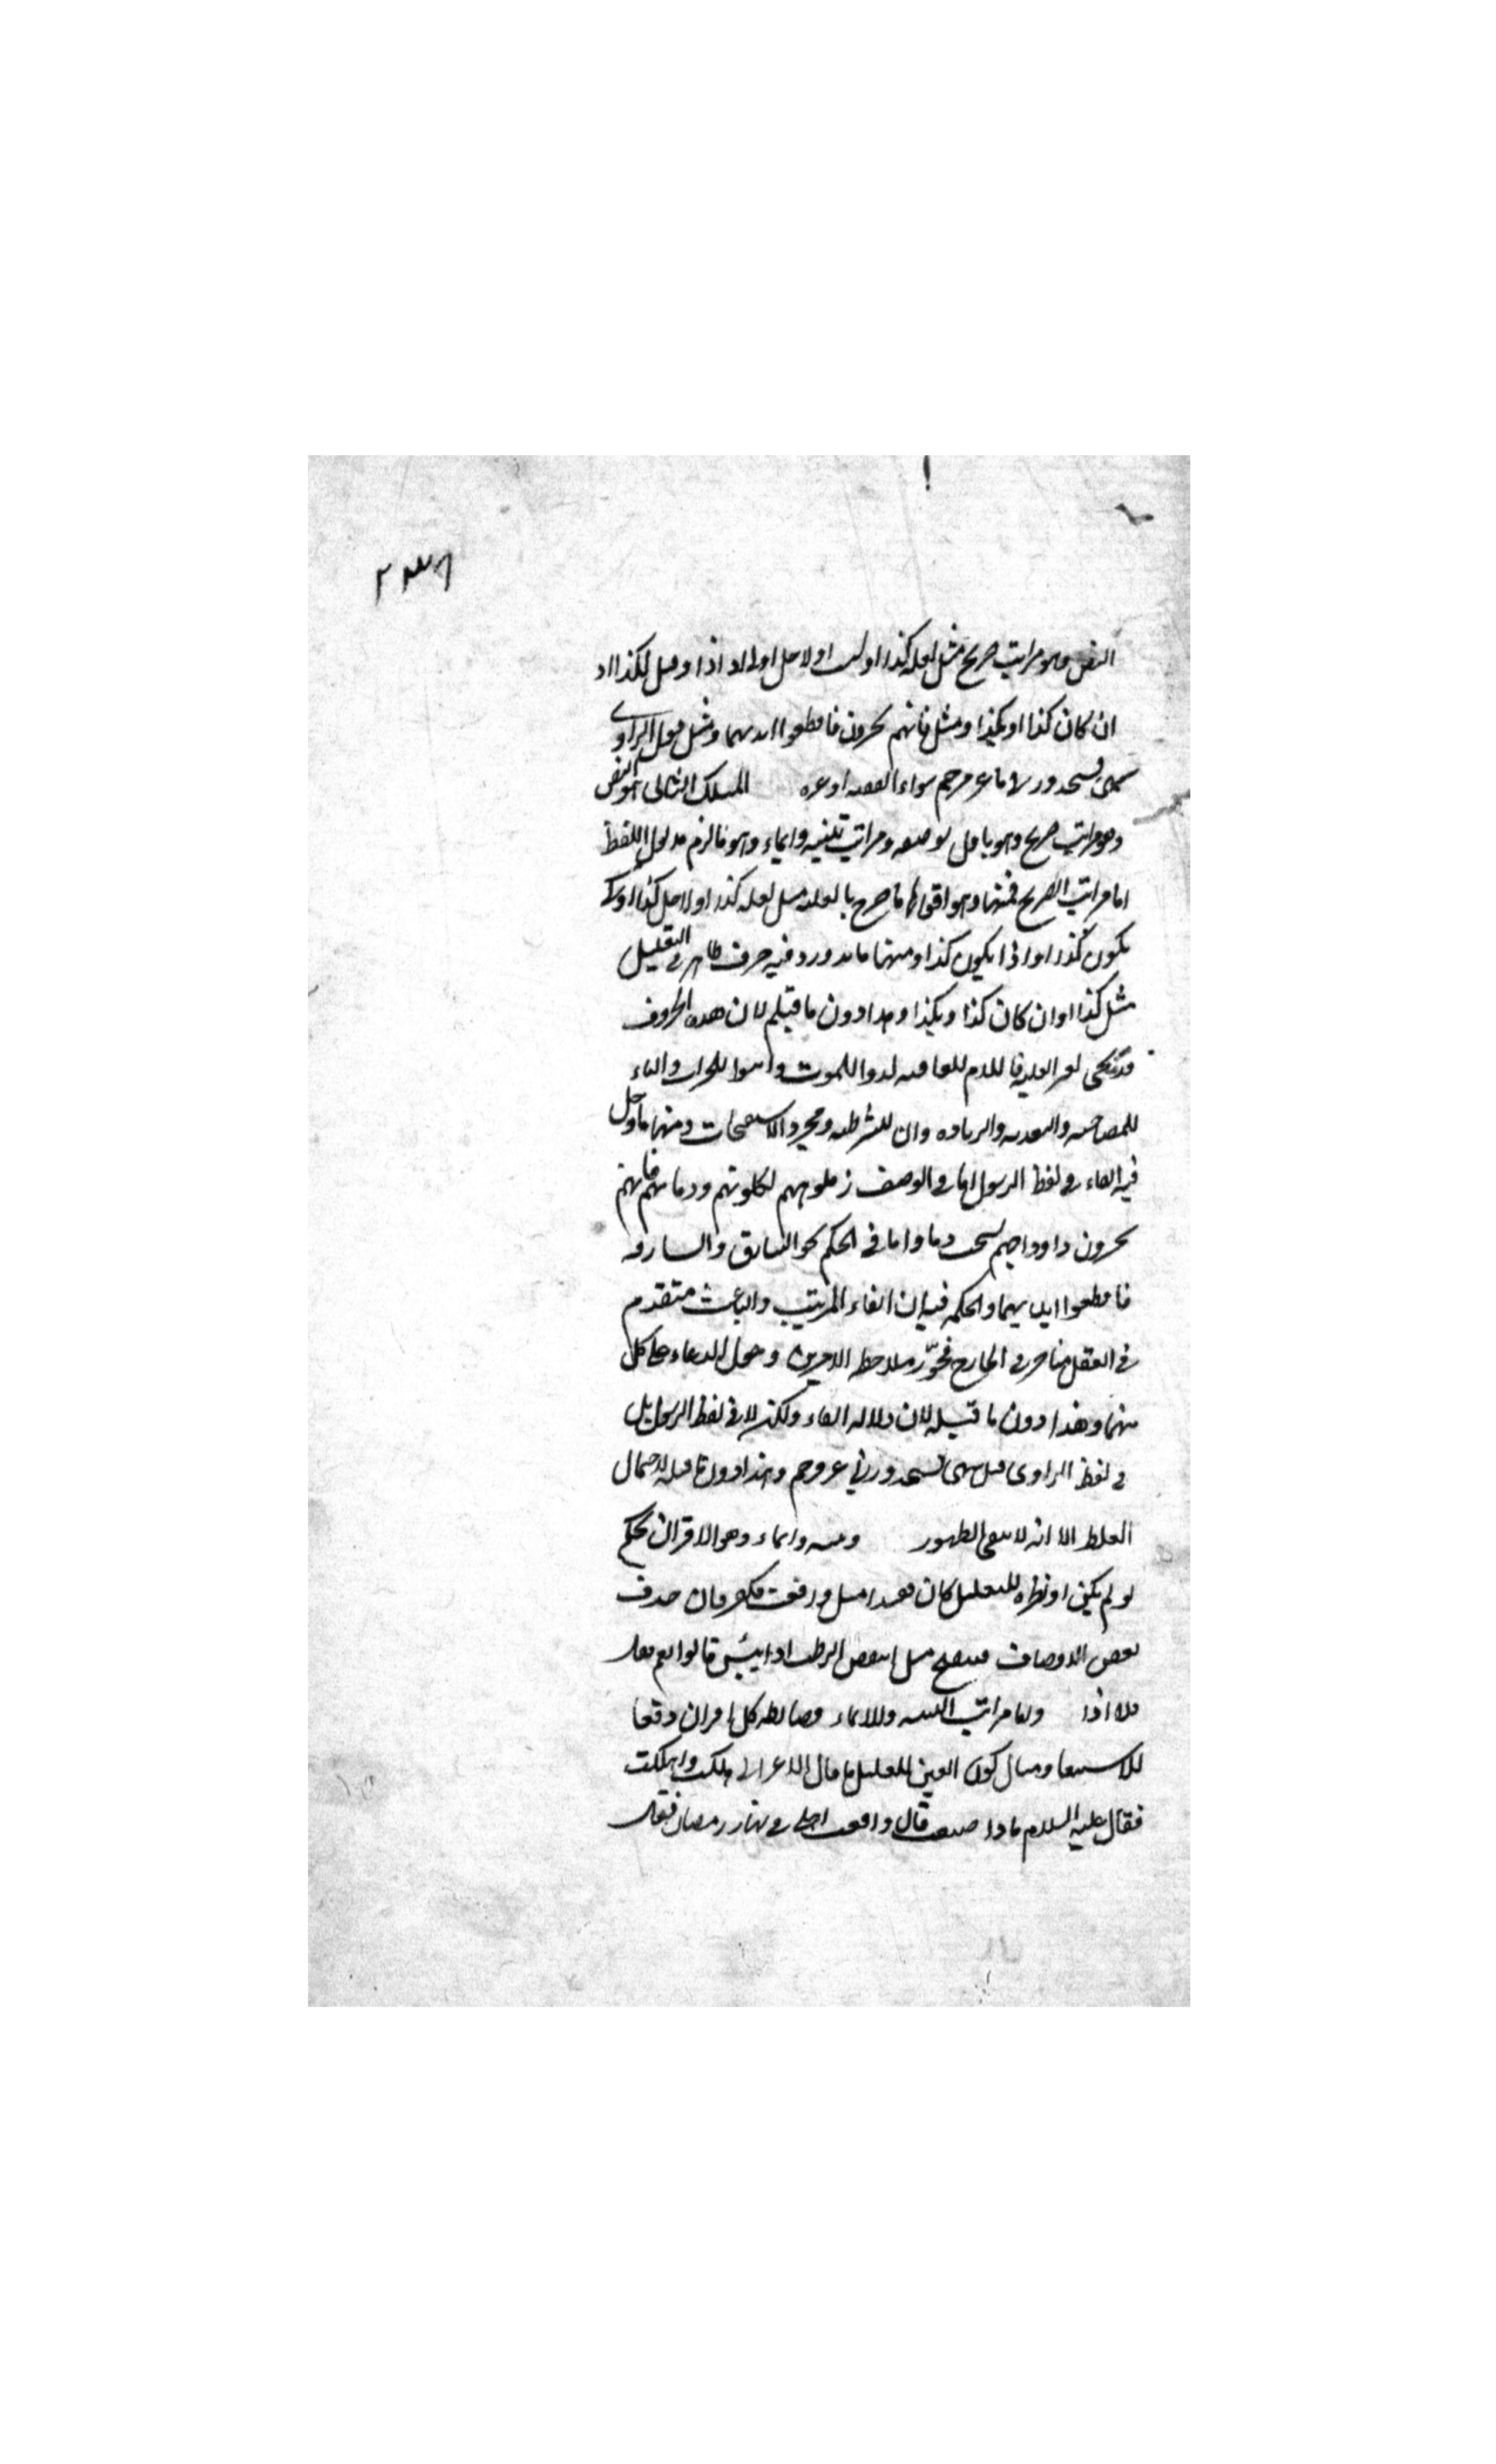 ٢٣٨
النص وهو مراتب صريح مثل لعله كذا او لسبب او لاجل او لى او اذا ومثل لكذا او
ان كان كذا او بكذا ومثل فانهم يحشرون فاقطعوا ايديهما ومثل قول الراوى
سهى فسجد وزنا ماعز فرجم سواء الفقيه او غيره المسلك الثانى هو النص
وهو مراتب صريح وهو ما دل بوضعه ومراتب تنبيه وايماء وهو ما لزم مدلول اللفظ
اما مراتب الصريح فمنها وهو اقواها ما صرح بالعلة مثل لعله كذا او لاجل كذا او كى
يكون كذا او اذا يكون كذا ومنها ما ورد فيه حرف ظاهر فى التعليل
مثل كذا او ان كان كذا وبكذا وهذا دون ما قبله لان هذه الحروف
قد تجى لغير العلية فاللام للعاقبه لدوا للموت وابنوا للخراب والباء
للمصاحبه والتعديه والزياده وان للشرطيه ومجرد الاستصحاب ومنها ما دخل
فيه الفاء فى لفظ الرسول اما فى الوصف زملوهم بكلومهم ودمائهم فانهم
يحشرون واوداجهم تشخب دما واما فى الحكم نحو السارق والسارقه
فاقطعوا ايديهما والحكمه فيه ان الفاء للترتيب والباعث متقدم
فى العقل متاخر فى الخارج فجوز ملاحظه الامرين دخول الفاء على كل
منهما وهذا دون ما قبله لان دلاله الفاء ولكن لا فى لفظ الرسول بل
فى لفظ الراوى مثل سهى فسجد وزنى ماعز فرجم وهذا دون ما قبله لاحتمال
الغلط الا انه لا ينفى الظهور وتنبيه وايماء وهو الاقتران بحكم
لو لم يكن او نظيره للتعليل كان بعيدا مثل واقعت فكفر فان حذف
بعض الاوصاف فتنقيح مثل اينقص الرطب اذا يبس قالوا نعم فقال
فلا اذا واما مراتب التنبيه والايماء فضابطه كل اقتران وقع
للاستبعاد ومثال كون العين للتعليل ما قال الاعرابى هلكت واهلكت
فقال عليه السلام ماذا صنعت قال واقعت اهلى فى نهار رمضان فقال